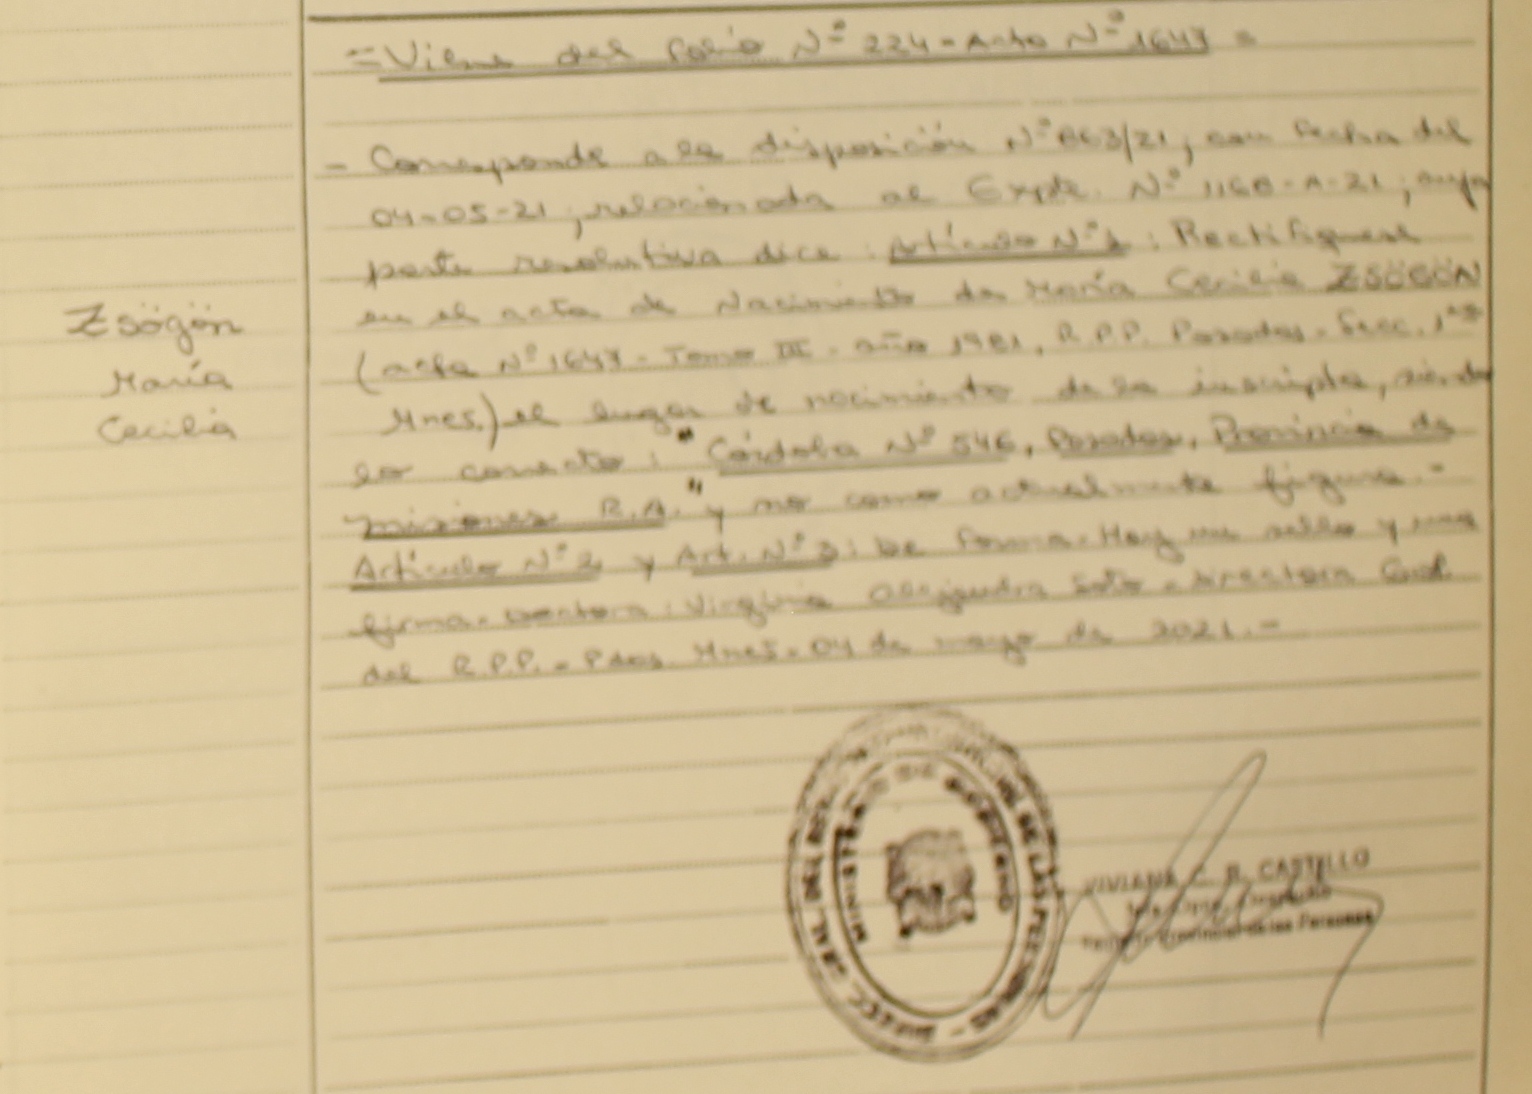 = Viene del folio Nº 224 - Acta Nº 1647 =
- Corresponde a la disposición Nº 863/21, con fecha del
04-05-21, relacionada al Expte. Nº 1168-A-21, cuya
parte resolutiva dice: Artículo Nº 1: Rectifíquese
en el acta de Nacimiento de María Cecilia ZSÖGÖN
(acta Nº 1647 - Tomo III - año 1981, R.P.P. Posadas - Secc. 1ra
Mnes.) el lugar de nacimiento de la inscripta, siendo
lo correcto: "Córdoba Nº 546, Posadas, Provincia de
Misiones R.A." y no como actualmente figura.-
Artículo Nº 2 y Art. Nº 3: De forma. Hay un sello y una
firma. Doctora: Virginia Alejandra Soto - Directora Gral.
del R.P.P. - Pdas. Mnes. 04 de mayo de 2021.-
Zsögön
María
Cecilia
MINISTERIO DE GOBIERNO
DIRECC. GRAL. DEL DE LAS PERSONAS
VIVIANA C. R. CASTELLO
Provincial de las Personas